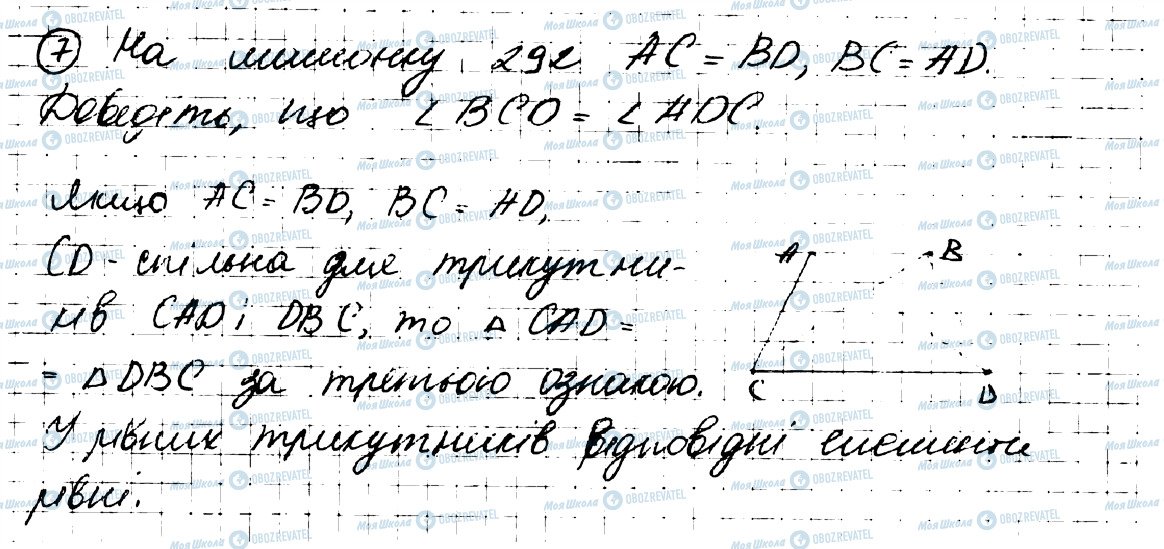 7 На малюнку 292 AC = BD, BC = AD.
Доведіть, що ∠ BCO = ∠ ADC.
Якщо AC = BD, BC = AD,
CD - спільна для трикутни-
ків CAD і DBC, то △ CAD =
= △ DBC за третьою ознакою.
У рівних трикутників відповідні елементи
рівні.
A B
C D
Моя Школа OBOZREVATEL